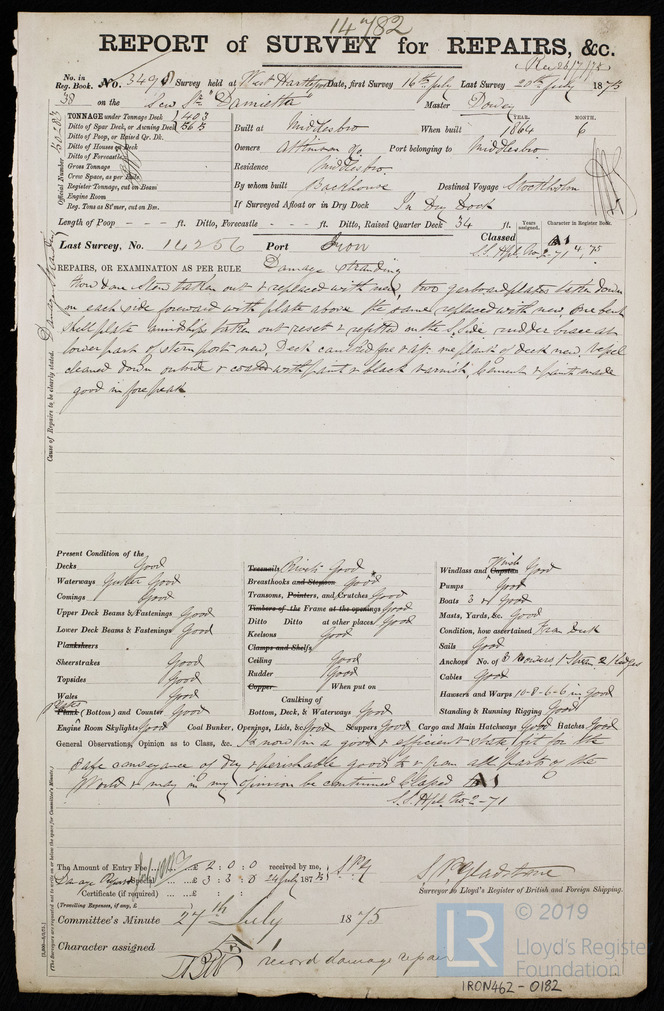 14782
REPORT of SURVEY for REPAIRS, &c.
Rec 26/7/75
No. in Reg. Book. No. 3498 Survey held at West Hartlepool Date, first Survey 16th July Last Survey 20th July 1875
38 on the "Scw Str "Damietta" Master Dowey
TONNAGE under Tonnage Deck 1403
Ditto of Spar Deck, or Awning Deck 565
Ditto of Poop, or Raised Qr. Dk.
Ditto of Houses on Deck
Ditto of Forecastle
Gross Tonnage
Crew Space, as per Rule
Register Tonnage, cut on Beam
Engine Room
Reg. Tons as St'mer, cut on Bm.
Official Number
Built at Middlesbro When built YEAR. 1864 MONTH. 6
Owners Port belonging to Middlesbro
Residence Middlesbro
By whom built Backhouse Destined Voyage Stockholm
If Surveyed Afloat or in Dry Dock In Dry Dock
Length of Poop - - - ft. Ditto, Forecastle - - - ft. Ditto, Raised Quarter Deck 34 ft. Years assigned. Character in Register Book.
Last Survey, No. 14256 Port Iron Classed A1
S.S. Hpl. No 2-71 4,75
REPAIRS, OR EXAMINATION AS PER RULE Damage stranding
Cause of Repairs to be clearly stated. Damage Stranding
taken out & replaced with new, two garboard plates taken down
on each side forward with plate above the same replaced with new one bent
shell plate amidships taken out reset & refitted on the S. side, rudder brace at
lower part of stern post new, Deck caulked fore & aft. one plank of deck new. Vessel
cleaned down outside & coated with paint & black varnish, Cement & paint made
good in forepeak.
Present Condition of the
Decks Good
Waterways Gutter Good
Comings Good
Upper Deck Beams & Fastenings Good
Lower Deck Beams & Fastenings Good
Planksheers
Sheerstrakes Good
Topsides Good
Wales Good
Plates
Plank (Bottom) and Counter Good
Treenails Rivets Good
Breasthooks and Stepson Good
Transoms, Pointers, and Crutches Good
Timbers of the Frame at the openings Good
Ditto Ditto at other places Good
Keelsons Good
Clamps and Shelfs
Ceiling Good
Rudder Good
Copper When put on
Caulking of
Bottom, Deck, & Waterways Good
Windlass and Capstan Winch Good
Pumps Good
Boats 3 of Good
Masts, Yards, &c. Good
Condition, how ascertained From Deck
Sails Good
Anchors No. of 3 Bowers 1 Stream 2 Kedges
Cables Good
Hawsers and Warps 10-8-6-6 in Good
Standing & Running Rigging Good
Engine Room Skylights Good Coal Bunker, Openings, Lids, &c. Good Scuppers Good Cargo and Main Hatchways Good Hatches Good
General Observations, Opinion as to Class, &c. Is now in a good & efficient state fit for the
safe conveyance of dry & perishable goods to & from all parts of the
World & may in my opinion be continued Classed A1
S.S. Hpl. No 2-71
The Amount of Entry Fee £ 2 : 0 : 0 received by me,
Damage Report Special £ 3 : 3 : 0 24 July 1875
Certificate (if required) £ : :
(Travelling Expenses, if any, £ )
S. Gladstone
Surveyor to Lloyd's Register of British and Foreign Shipping.
Committee's Minute 27th July 1875
Character assigned
record damage repair
(The Surveyors are requested not to write on or below the space for Committee's Minute.)
© 2019
LR
Lloyd's Register
Foundation
IRON462-0182